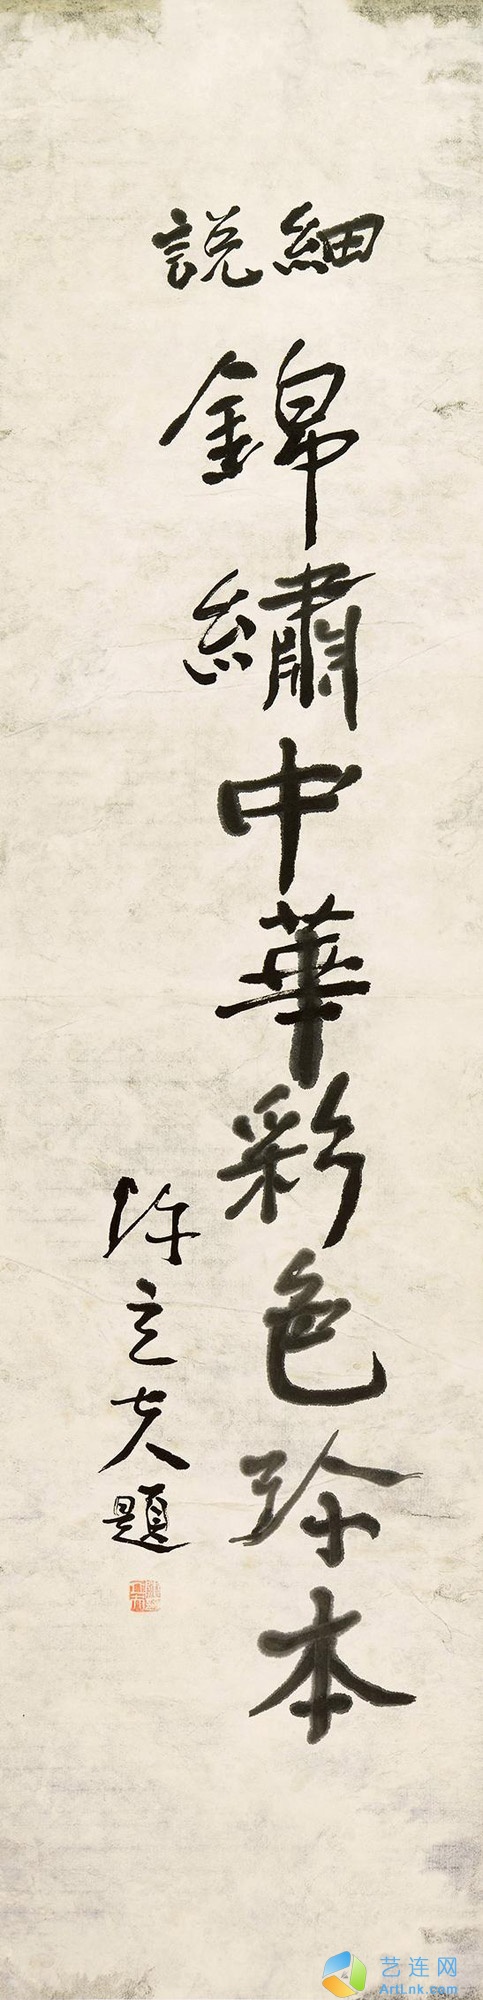 細說
錦繡中華彩色珍本
陳立夫題
艺连网
ArtLnk.com